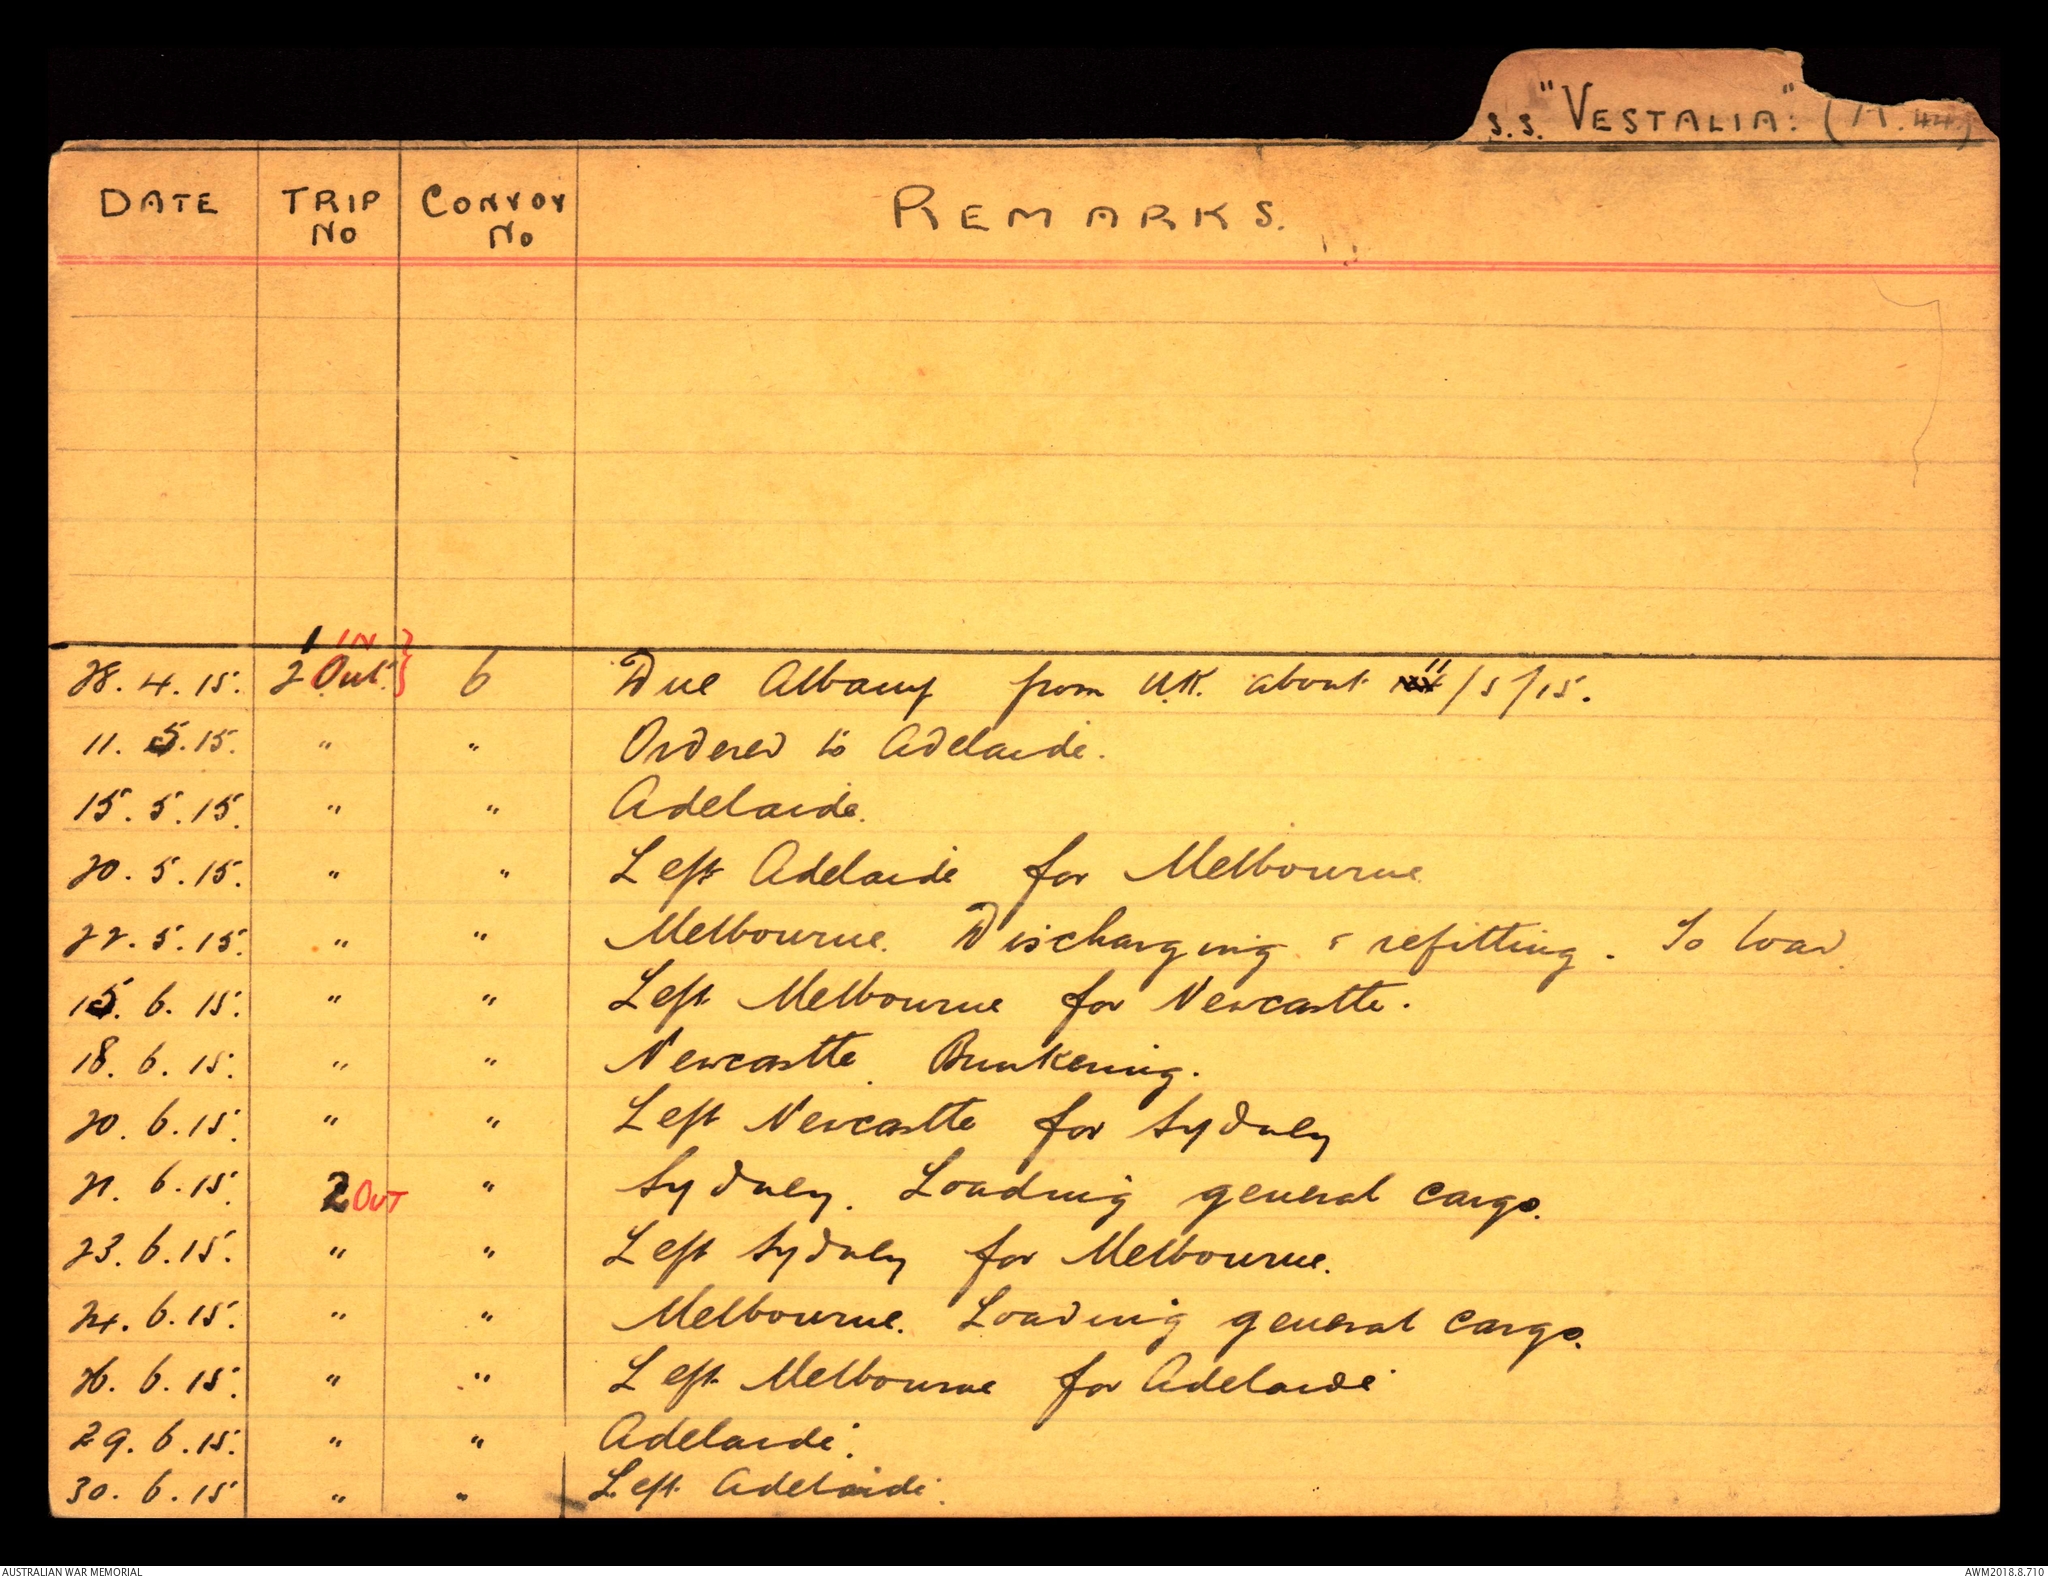 s.s. "VESTALIA". (A.44)
DATE TRIP No CONVOY No REMARKS.
1 IN }
28.4.15. 2 Out. } 6 Due Albany from U.K. about 11/5/15.
11. 5.15. " " Ordered to Adelaide.
15. 5. 15. " " Adelaide.
20. 5. 15. " " Left Adelaide for Melbourne
22. 5. 15. " " Melbourne. Discharging & refitting. To load.
15. 6. 15. " " Left Melbourne for Newcastle.
18. 6. 15. " " Newcastle. Bunkering.
20. 6. 15. " " Left Newcastle for Sydney
21. 6. 15. 2 OUT " Sydney. Loading general cargo.
23. 6. 15. " " Left Sydney for Melbourne.
24. 6. 15. " " Melbourne. Loading general cargo.
26. 6. 15. " " Left Melbourne for Adelaide
29. 6. 15. " " Adelaide.
30. 6. 15 " " Left Adelaide.
AUSTRALIAN WAR MEMORIAL AWM2018.8.710